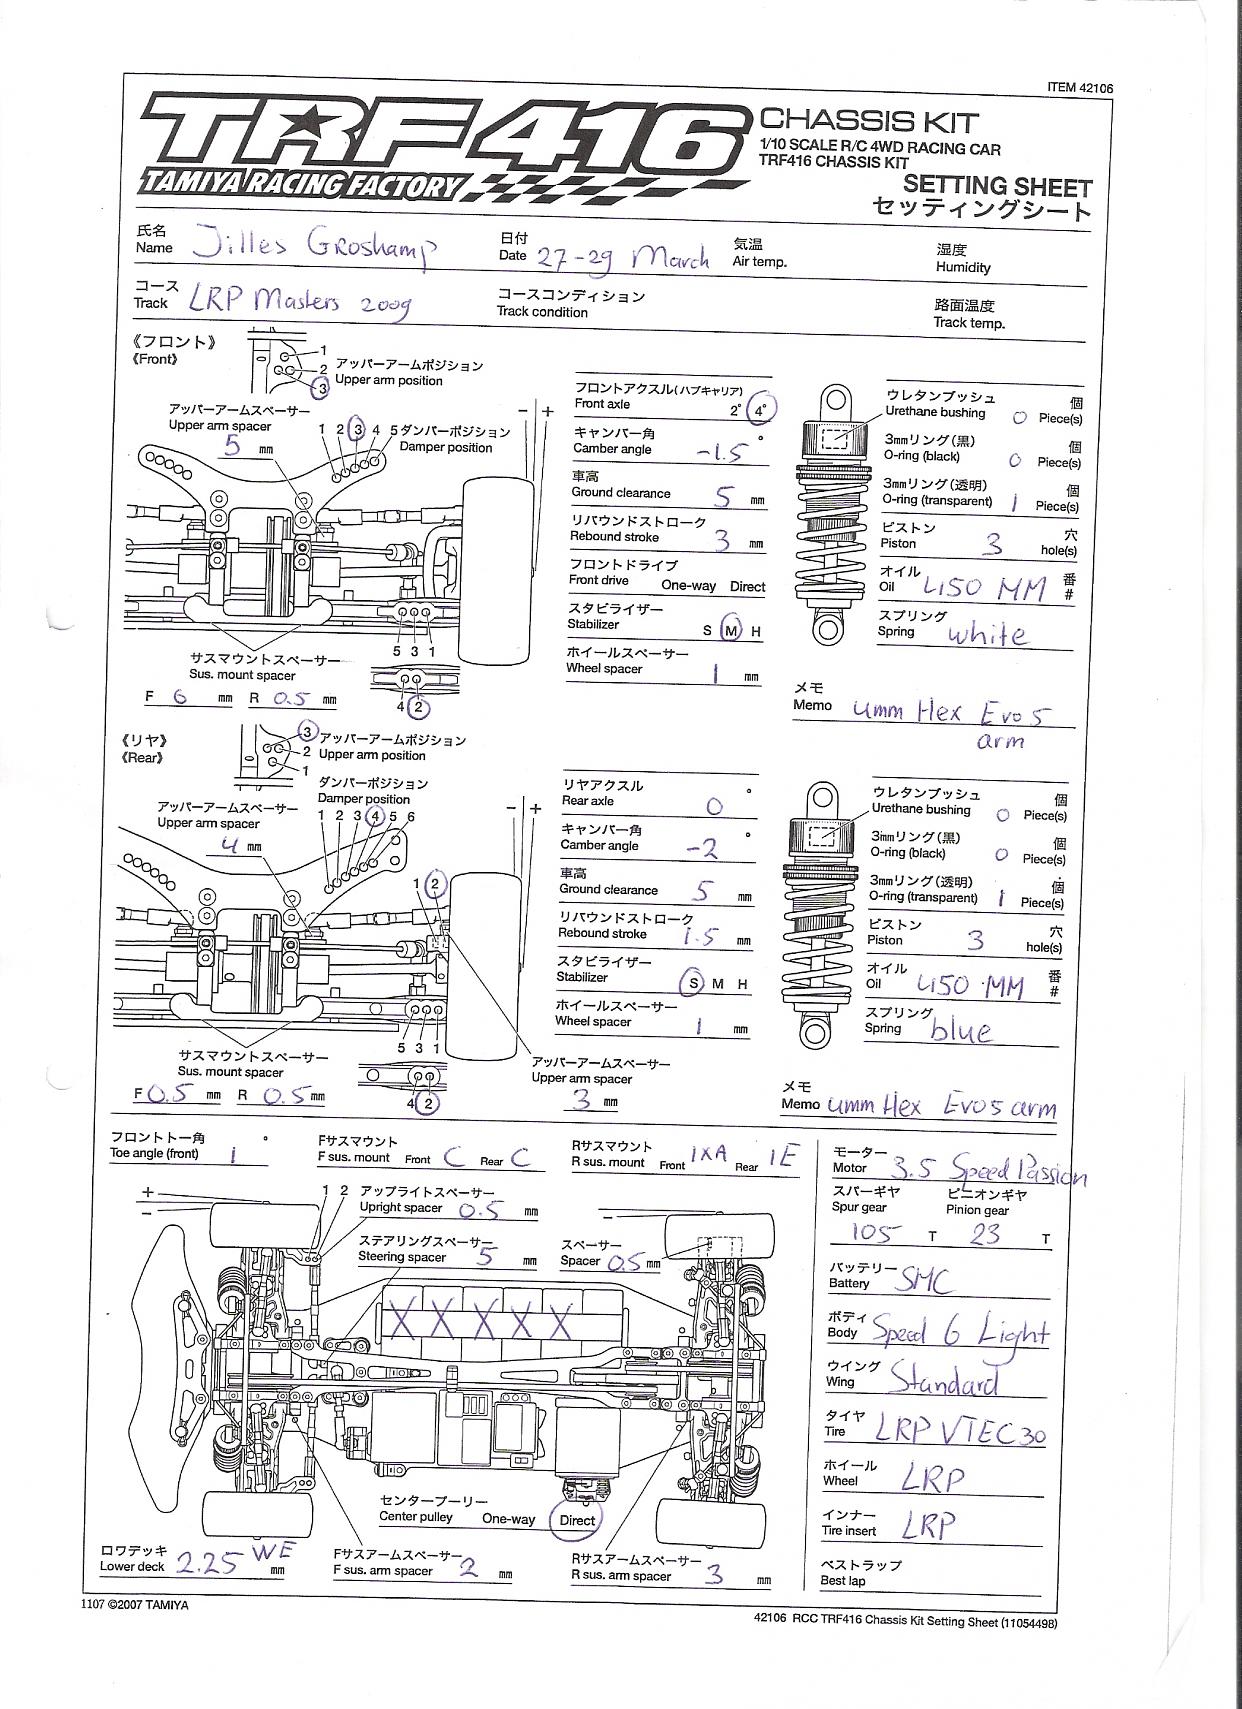 ITEM 42106
TRF416
TAMIYA RACING FACTORY
CHASSIS KIT
1/10 SCALE R/C 4WD RACING CAR
TRF416 CHASSIS KIT
SETTING SHEET
セッティングシート
氏名 Name Jilles Groskamp
日付 Date 27-29 March
気温 Air temp.
湿度 Humidity
コース Track LRP Masters 2009
コースコンディション Track condition
路面温度 Track temp.
《フロント》
《Front》
1
2
3
アッパーアームポジション
Upper arm position
アッパーアームスペーサー
Upper arm spacer
5 mm
1 2 3 4 5 ダンパーポジション
Damper position
- +
5 3 1
4 2
サスマウントスペーサー
Sus. mount spacer
F 6 mm R 0.5 mm
フロントアクスル(ハブキャリア)
Front axle 2° 4°
キャンバー角 °
Camber angle -1.5
車高
Ground clearance 5 mm
リバウンドストローク
Rebound stroke 3 mm
フロントドライブ
Front drive One-way Direct
スタビライザー
Stabilizer S M H
ホイールスペーサー
Wheel spacer 1 mm
ウレタンブッシュ 個
Urethane bushing 0 Piece(s)
3mmリング(黒) 個
O-ring (black) 0 Piece(s)
3mmリング(透明) 個
O-ring (transparent) 1 Piece(s)
ピストン 穴
Piston 3 hole(s)
オイル 番
Oil 450 MM #
スプリング
Spring white
メモ
Memo 4mm Hex Evo 5
arm
《リヤ》
《Rear》
3
2
1
アッパーアームポジション
Upper arm position
ダンパーポジション
Damper position
1 2 3 4 5 6
アッパーアームスペーサー
Upper arm spacer
4 mm
- +
1 2
5 3 1
4 2
サスマウントスペーサー
Sus. mount spacer
F 0.5 mm R 0.5 mm
リヤアクスル °
Rear axle 0
キャンバー角 °
Camber angle -2
車高
Ground clearance 5 mm
リバウンドストローク
Rebound stroke 1.5 mm
スタビライザー
Stabilizer S M H
ホイールスペーサー
Wheel spacer 1 mm
アッパーアームスペーサー
Upper arm spacer
3 mm
ウレタンブッシュ 個
Urethane bushing 0 Piece(s)
3mmリング(黒) 個
O-ring (black) 0 Piece(s)
3mmリング(透明) 個
O-ring (transparent) 1 Piece(s)
ピストン 穴
Piston 3 hole(s)
オイル 番
Oil 450 MM #
スプリング
Spring blue
メモ
Memo 4mm Hex Evo 5 arm
フロントトー角 °
Toe angle (front) 1
Fサスマウント
F sus. mount Front C Rear C
Rサスマウント
R sus. mount Front 1XA Rear 1E
+
-
1 2
アップライトスペーサー
Upright spacer 0.5 mm
ステアリングスペーサー
Steering spacer 5 mm
- +
スペーサー
Spacer 0.5 mm
X X X X X
センタープーリー
Center pulley One-way Direct
ロワデッキ
Lower deck 2.25 WE mm
Fサスアームスペーサー
F sus. arm spacer 2 mm
Rサスアームスペーサー
R sus. arm spacer 3 mm
モーター
Motor 3.5 Speed Passion
スパーギヤ ピニオンギヤ
Spur gear Pinion gear
105 T 23 T
バッテリー
Battery SMC
ボディ
Body Speed 6 Light
ウイング
Wing Standard
タイヤ
Tire LRP VTEC 30
ホイール
Wheel LRP
インナー
Tire insert LRP
ベストラップ
Best lap
1107 ©2007 TAMIYA
42106 RCC TRF416 Chassis Kit Setting Sheet (11054498)